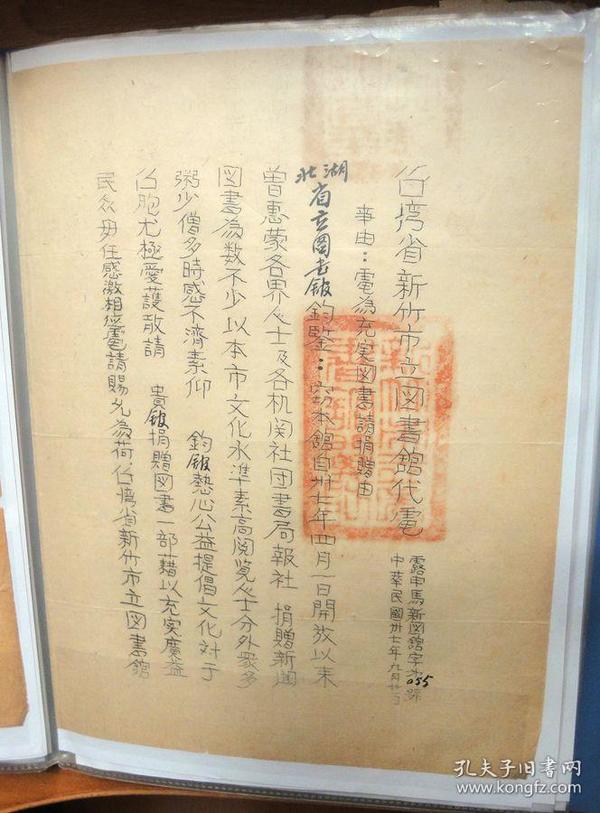 台湾省新竹市立図書館代電
露申馬新図館字第055號
中華民國卅七年九月廿一日
事由：電為充实図書請捐贈由
湖北省立圖書館鈞鑒：窃本館自卅七年四月一日開放以来
曾惠蒙各界人士及各机関社団書局報社 捐贈新聞
図書為数不少以本市文化水準素高閲覧人士分外衆多
粥少僧多時感不濟素仰 鈞館熱心公益提倡文化対于
台胞尤極愛護敢請 貴館捐贈図書一部藉以充実廣益
民众毋任感激相应電請賜允為荷台湾省新竹市立図書館
孔夫子旧书网
www.kongfz.com